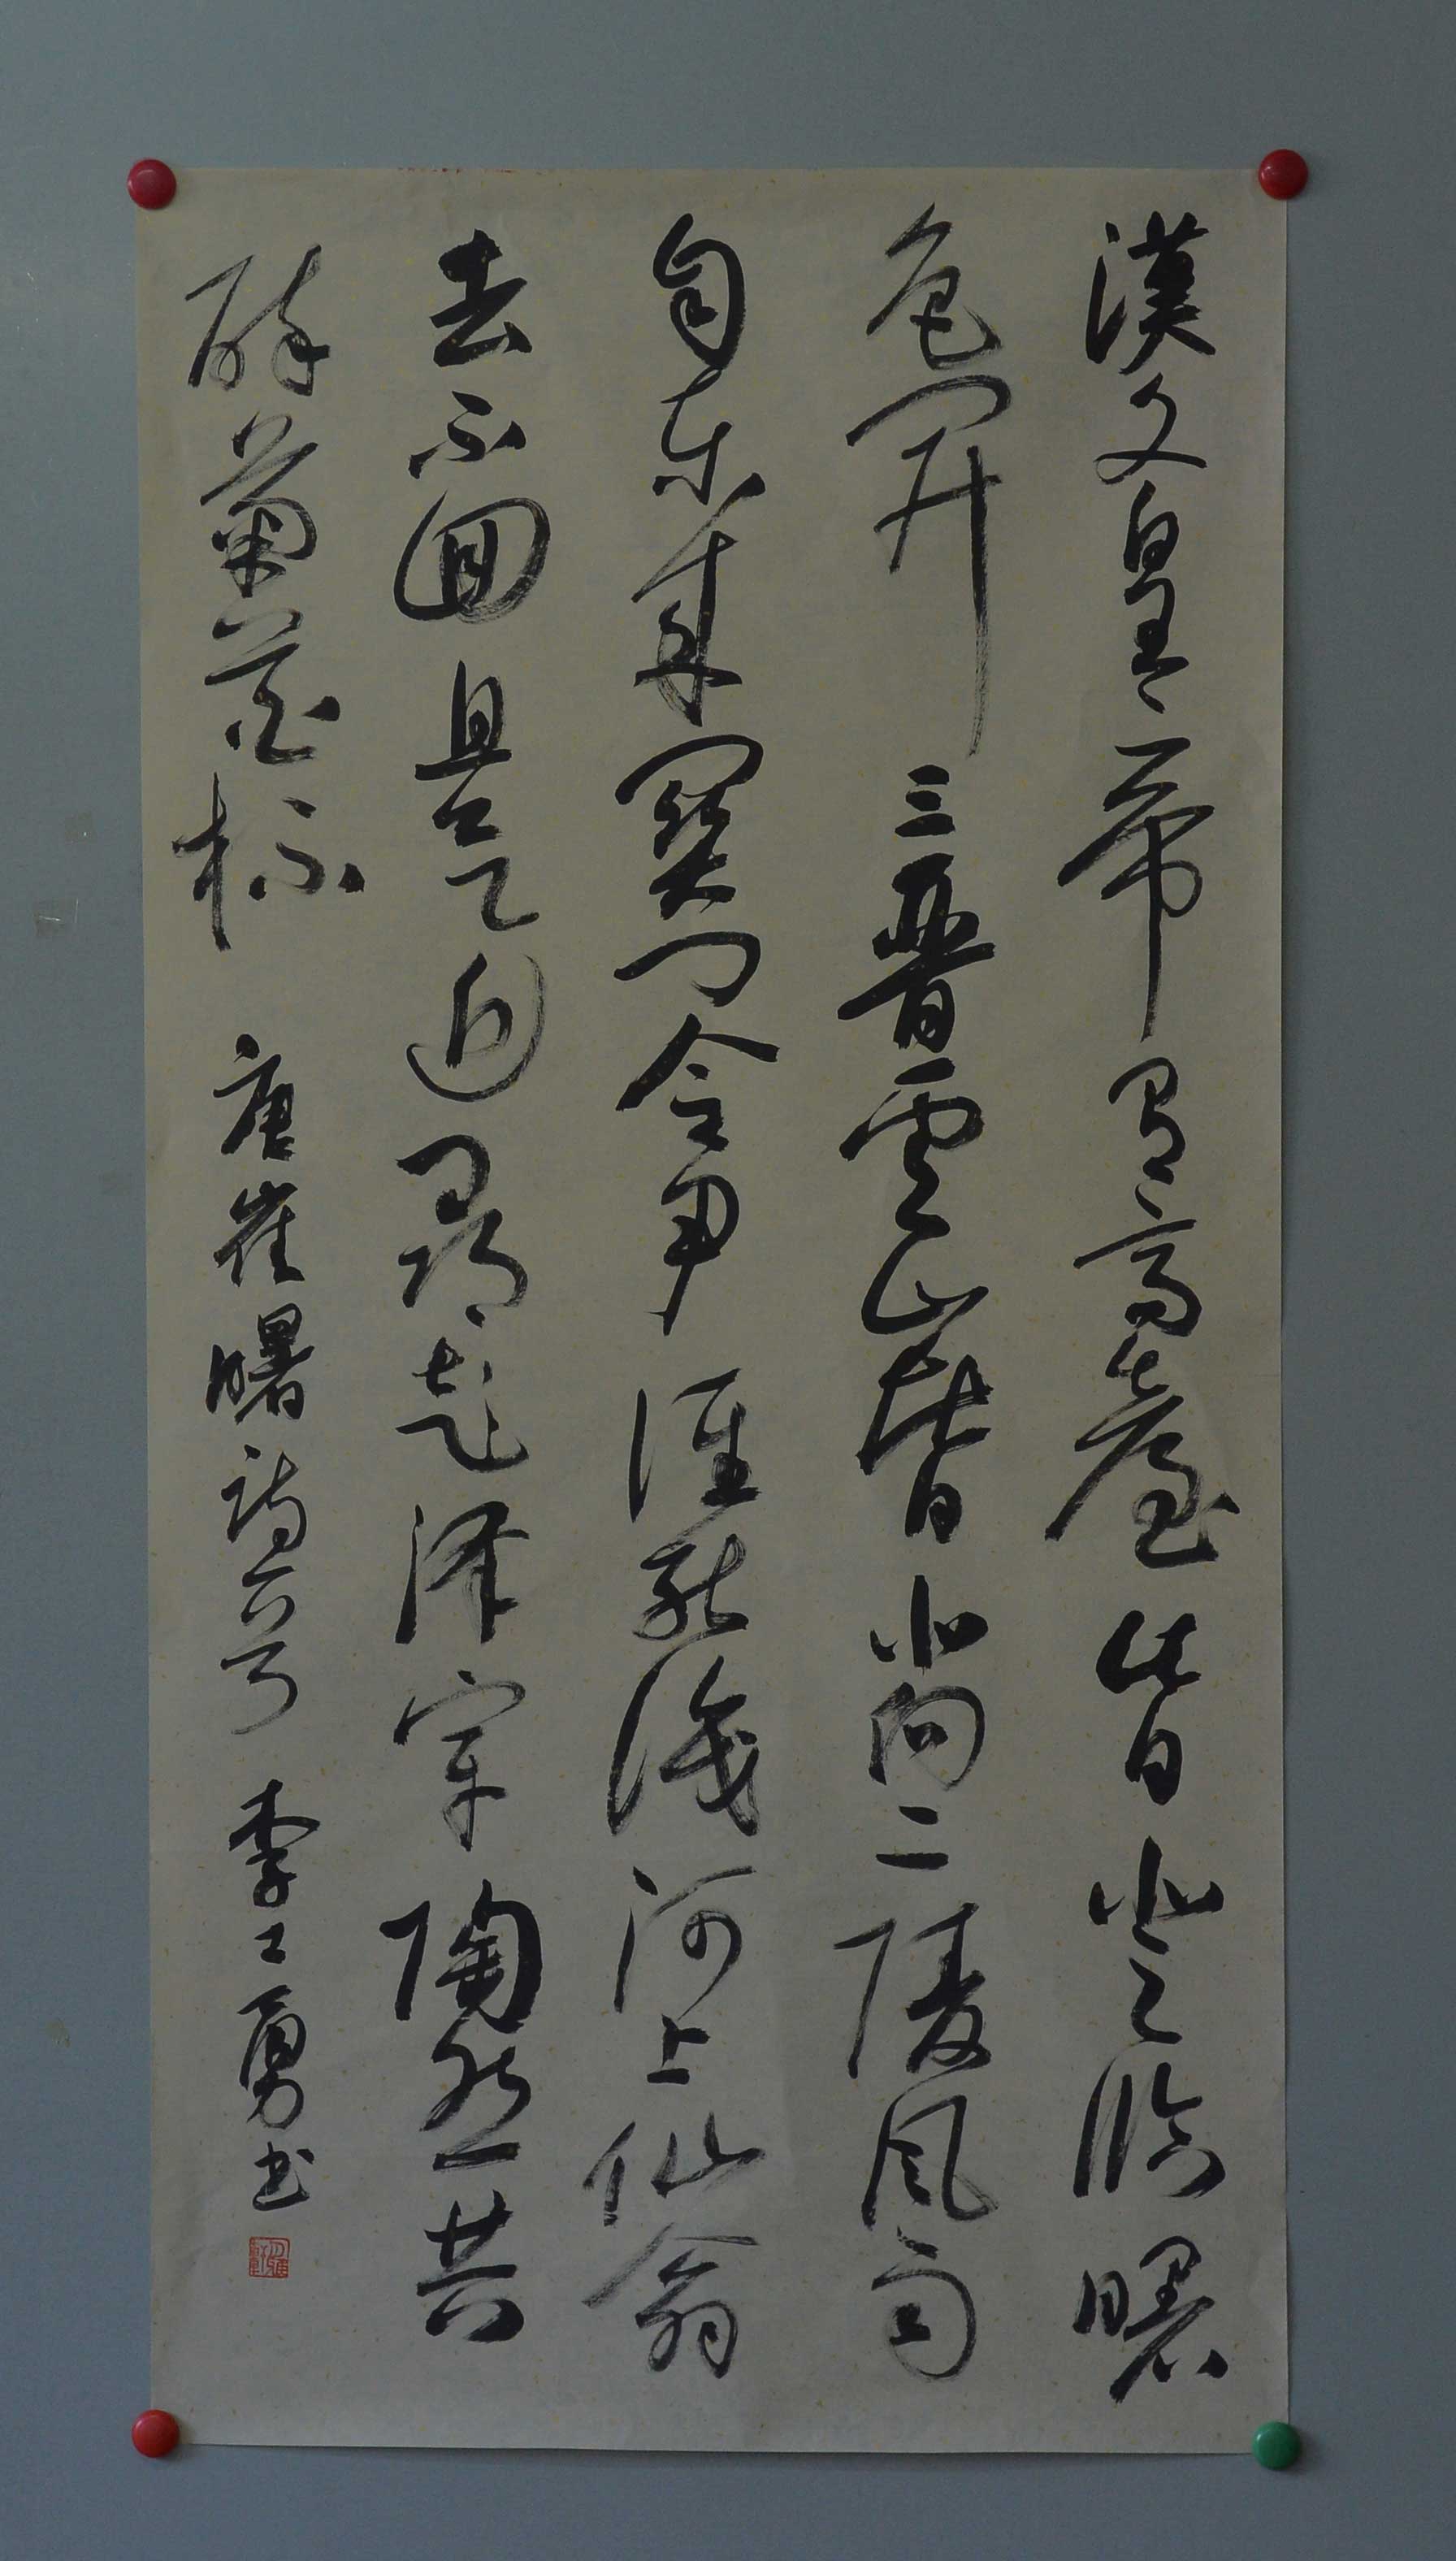 漢文皇帝有高臺此日登臨曙
色開三晉雲山皆北向二陵風雨
自东来關門令尹誰能識河上仙翁
去不回且欲近尋彭泽宰陶然共
醉菊花杯 唐崔曙詩一首 李工勇书